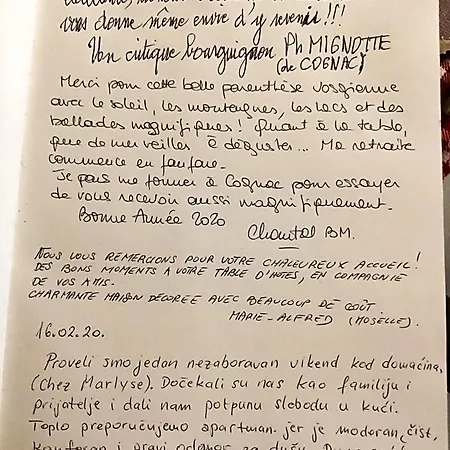 vous donne même envie d'y revenir!!!
Un critique bourguignon Ph MIGNOTTE
(de COGNAC)
Merci pour cette belle parenthèse vosgienne
avec le soleil, les montagnes, les lacs et des
ballades magnifiques! Quant à la table,
que de merveilles à déguster... Ma retraite
commence en fanfare.
Je pars me former à Cognac pour essayer
de vous recevoir aussi magnifiquement.
Bonne Année 2020
Chantal BM.
NOUS VOUS REMERCIONS POUR VOTRE CHALEUREUX ACCUEIL!
DES BONS MOMENTS A VOTRE TABLE D'HOTES, EN COMPAGNIE
DE VOS AMIS.
CHARMANTE MAISON DECOREE AVEC BEAUCOUP DE GOÛT
MARIE-ALFRED (MOSELLE).
16.02.20.
Proveli smo jedan nezaboravan vikend kod domaćina
(Chez Marlyse). Dočekali su nas kao familiju i
prijatelje i dali nam potpunu slobodu u kući.
Toplo preporučujemo apartman jer je moderan, čist,
komforan i pravi odmor za dušu.